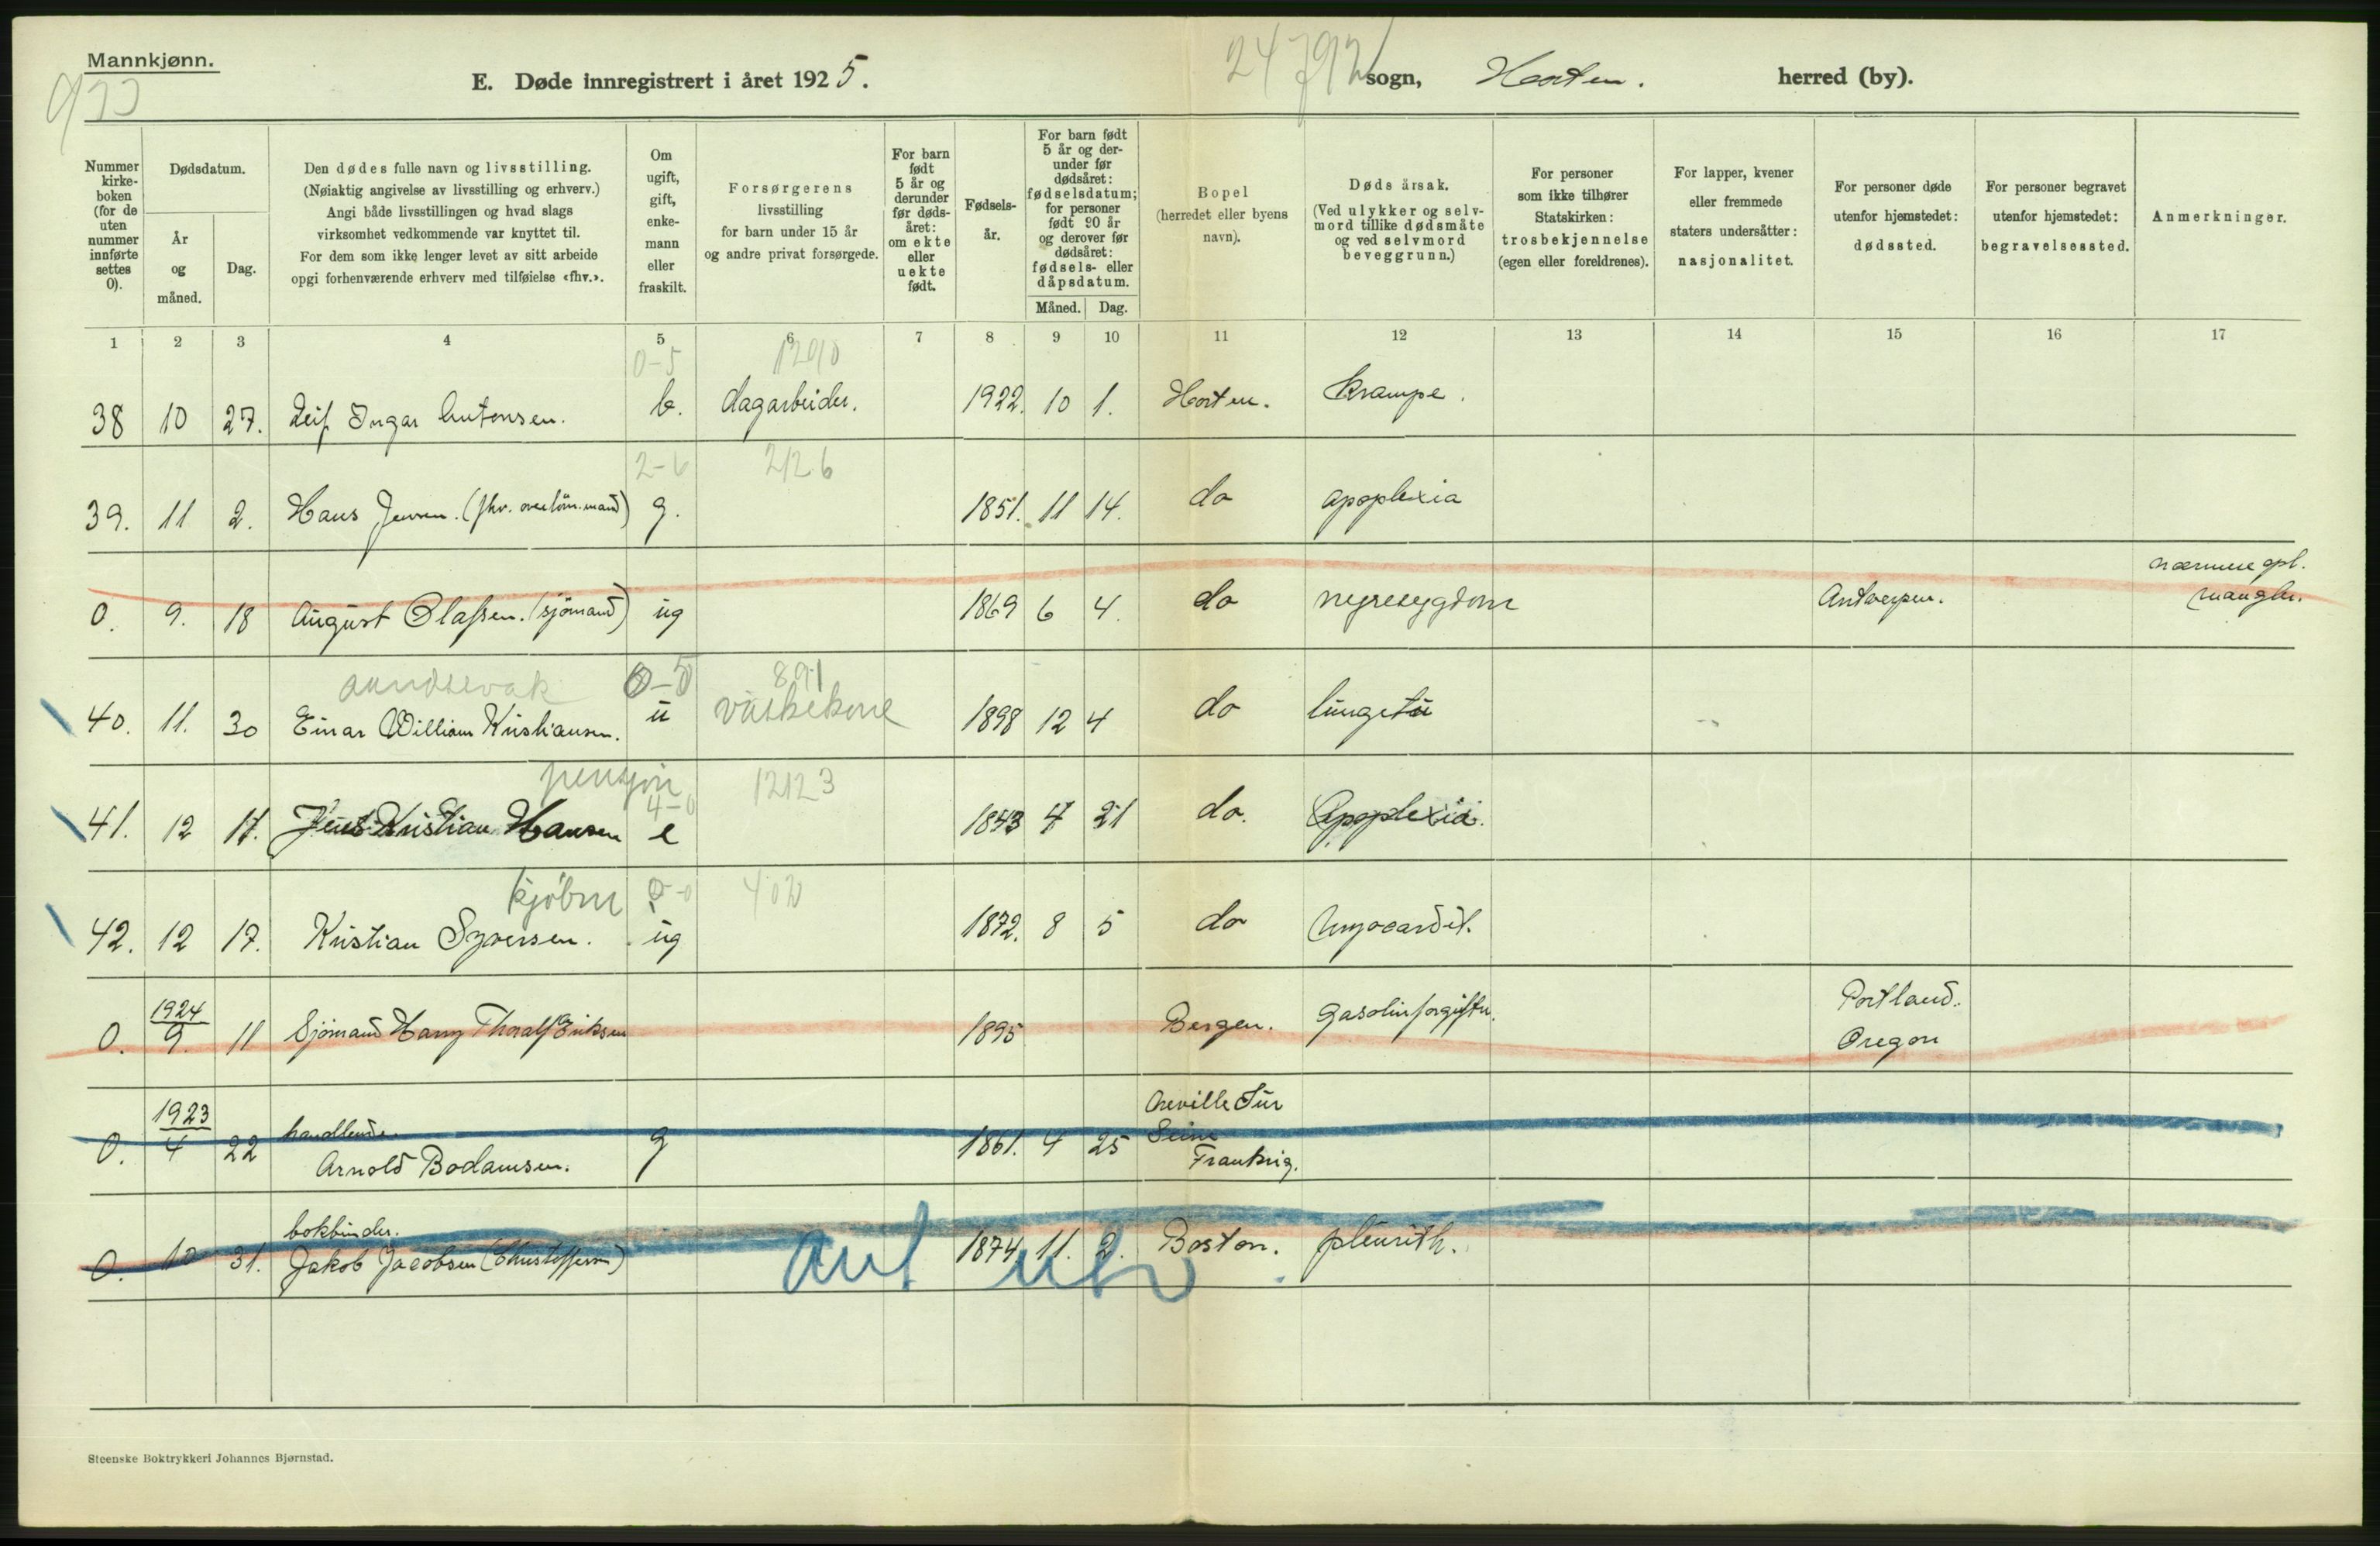 Mannkjønn.
E. Døde innregistrert i året 1925.
sogn, Horten. herred (by).
Nummer kirkeboken (for de uten nummer innførte settes 0).
Dødsdatum.
År og måned.
Dag.
Den dødes fulle navn og livsstilling.
(Nøiaktig angivelse av livsstilling og erhverv.)
Angi både livsstillingen og hvad slags
virksomhet vedkommende var knyttet til.
For dem som ikke lenger levet av sitt arbeide
opgi forhenværende erhverv med tilføielse «fhv.».
Om ugift, gift, enkemann eller fraskilt.
Forsørgerens
livsstilling
for barn under 15 år
og andre privat forsørgede.
For barn født 5 år og derunder før dødsåret: om ekte eller uekte født.
Fødselsår.
For barn født 5 år og derunder før dødsåret: fødselsdatum; for personer født 90 år og derover før dødsåret: fødsels- eller dåpsdatum.
Måned. Dag.
Bopel
(herredet eller byens
navn).
Dødsårsak.
(Ved ulykker og selvmord tillike dødsmåte og ved selvmord beveggrunn.)
For personer
som ikke tilhører
Statskirken:
trosbekjennelse
(egen eller foreldrenes).
For lapper, kvener
eller fremmede
staters undersåtter:
nasjonalitet.
For personer døde
utenfor hjemstedet:
dødssted.
For personer begravet
utenfor hjemstedet:
begravelsessted.
Anmerkninger.
1 2 3 4 5 6 7 8 9 10 11 12 13 14 15 16 17
0-5
38 10 27. Leif Ingar Antonsen. b. dagarbeider. 1922. 10 1. Horten. Krampe.
2-6 2126
39. 11 2. Hans Jensen. g. 1851. 11 14. do apoplexia
nærmere opl.
0. 9. 18 August Olafsen. (sjömand) ug 1869 6 4. do nyresygdom Antwerpen. mangler.
0-5 891
40. 11. 30 Einar William Kristiansen. u vaskekone 1898 12 4 do lungetu
pensjon 4-0 12123
41. 12 17. Jens Kristian Hansen e 1843 4 21 do. Apoplexia.
402
42. 12 17. Kristian Syversen. ug 1872. 8 5 do Myocardit.
1924 Portland.
0. 9. 11 Sjömand Harry Thoralf Eriksen 1895 Bergen. gasolinforgiftn. Oregon
1923 handlende
0. 4 22 Arnold Bodamsen. g 1861. 4 25 Seine Frankrig.
bokbinder.
0. 10 31. Jakob Jacobsen (Christoffersen) 1874 11. 2. Boston. pleurith.
Steenske Boktrykkeri Johannes Bjørnstad.